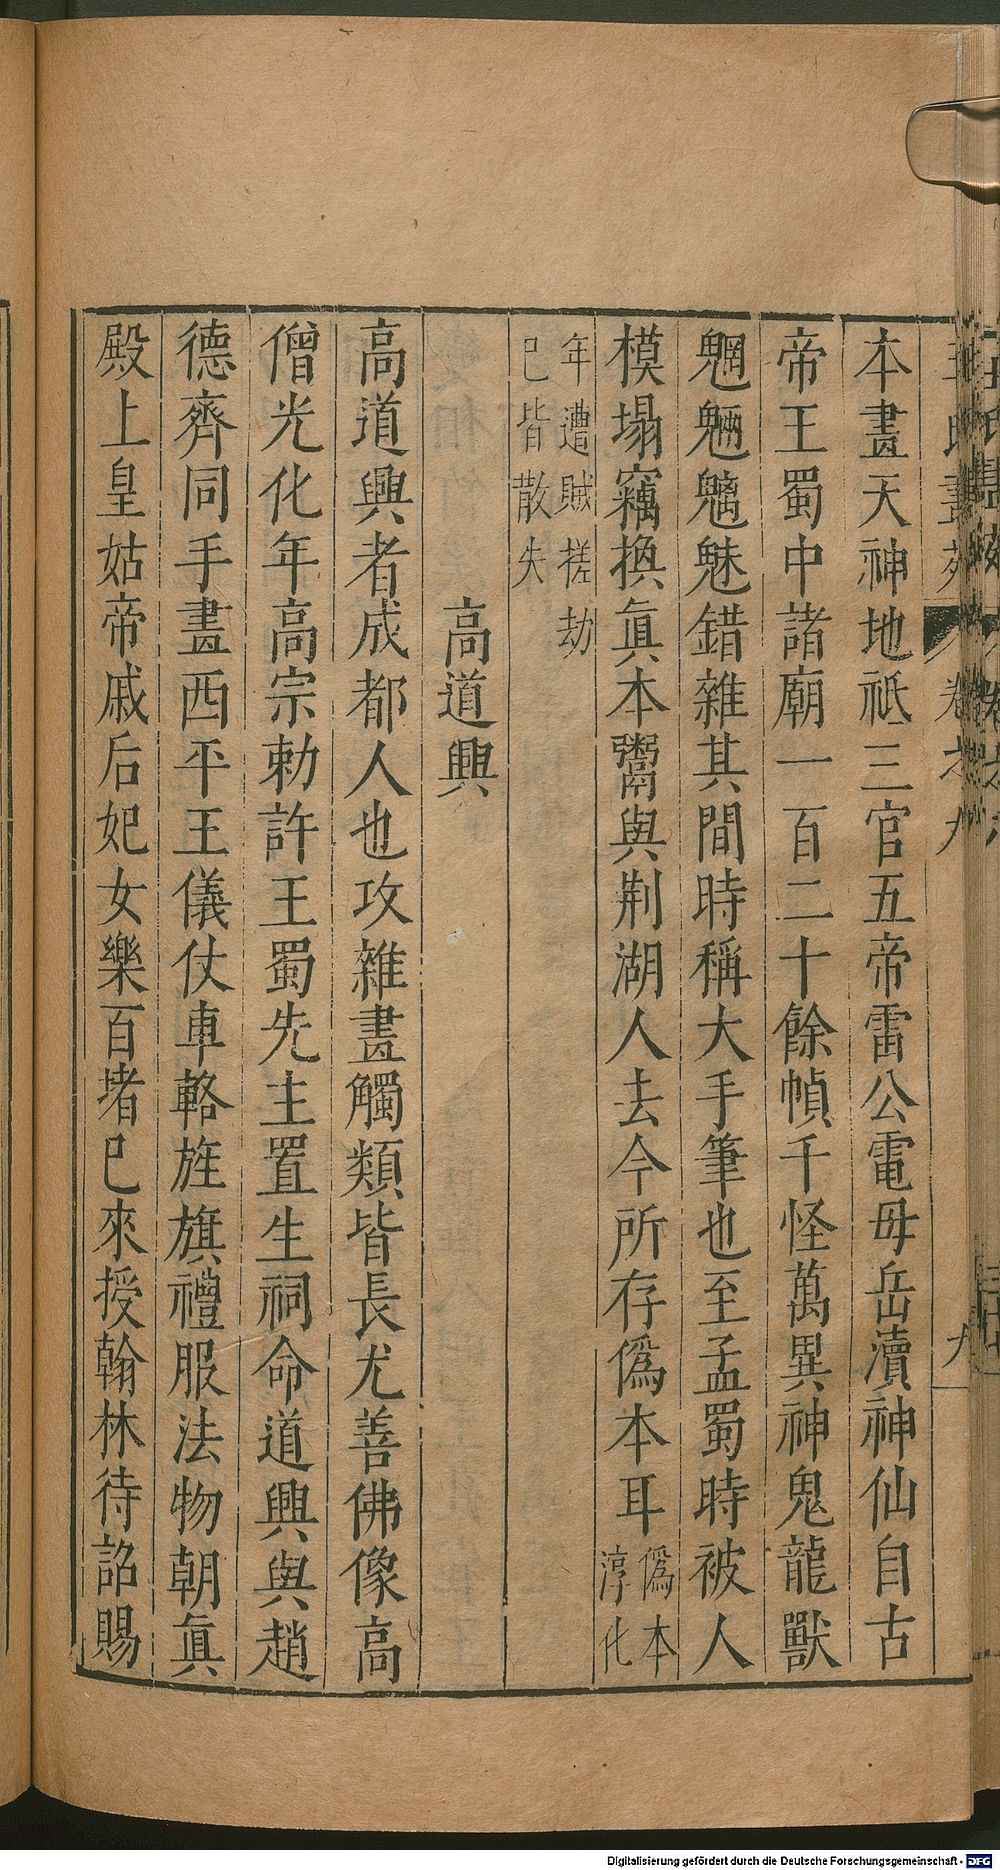 本畫天神地祇三官五帝雷公電母岳瀆神仙自古
帝王蜀中諸廟一百二十餘幀千怪萬異神鬼龍獸
魍魎魑魅錯雜其間時稱大手筆也至孟蜀時被人
模搨竊換眞本鬻與荆湖人去今所存僞本耳僞本淳化
年遭賊搓劫
已皆散失
高道興
高道興者成都人也攻雜畫觸類皆長尤善佛像高
僧光化年高宗勅許王蜀先主置生祠命道興與趙
德齊同手畫西平王儀仗車輅旌旗禮服法物朝眞
殿上皇姑帝戚后妃女樂百堵已來授翰林待詔賜
Digitalisierung gefördert durch die Deutsche Forschungsgemeinschaft - DFG